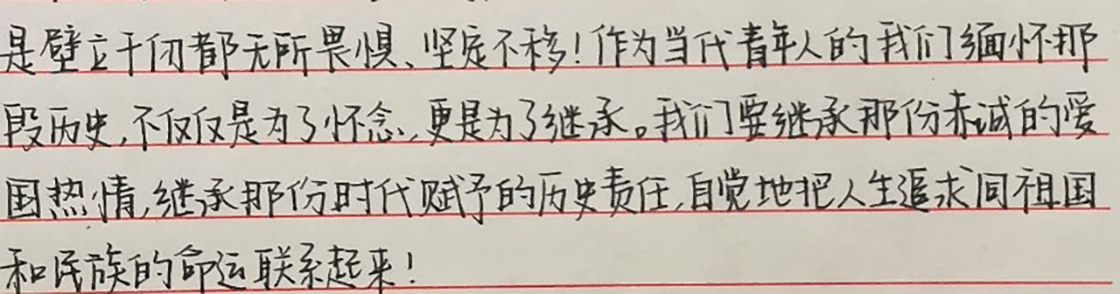 是壁立千仞都无所畏惧、坚定不移！作为当代青年人的我们缅怀那
段历史,不仅仅是为了怀念,更是为了继承。我们要继承那份赤诚的爱
国热情,继承那份时代赋予的历史责任,自觉地把人生追求同祖国
和民族的命运联系起来！